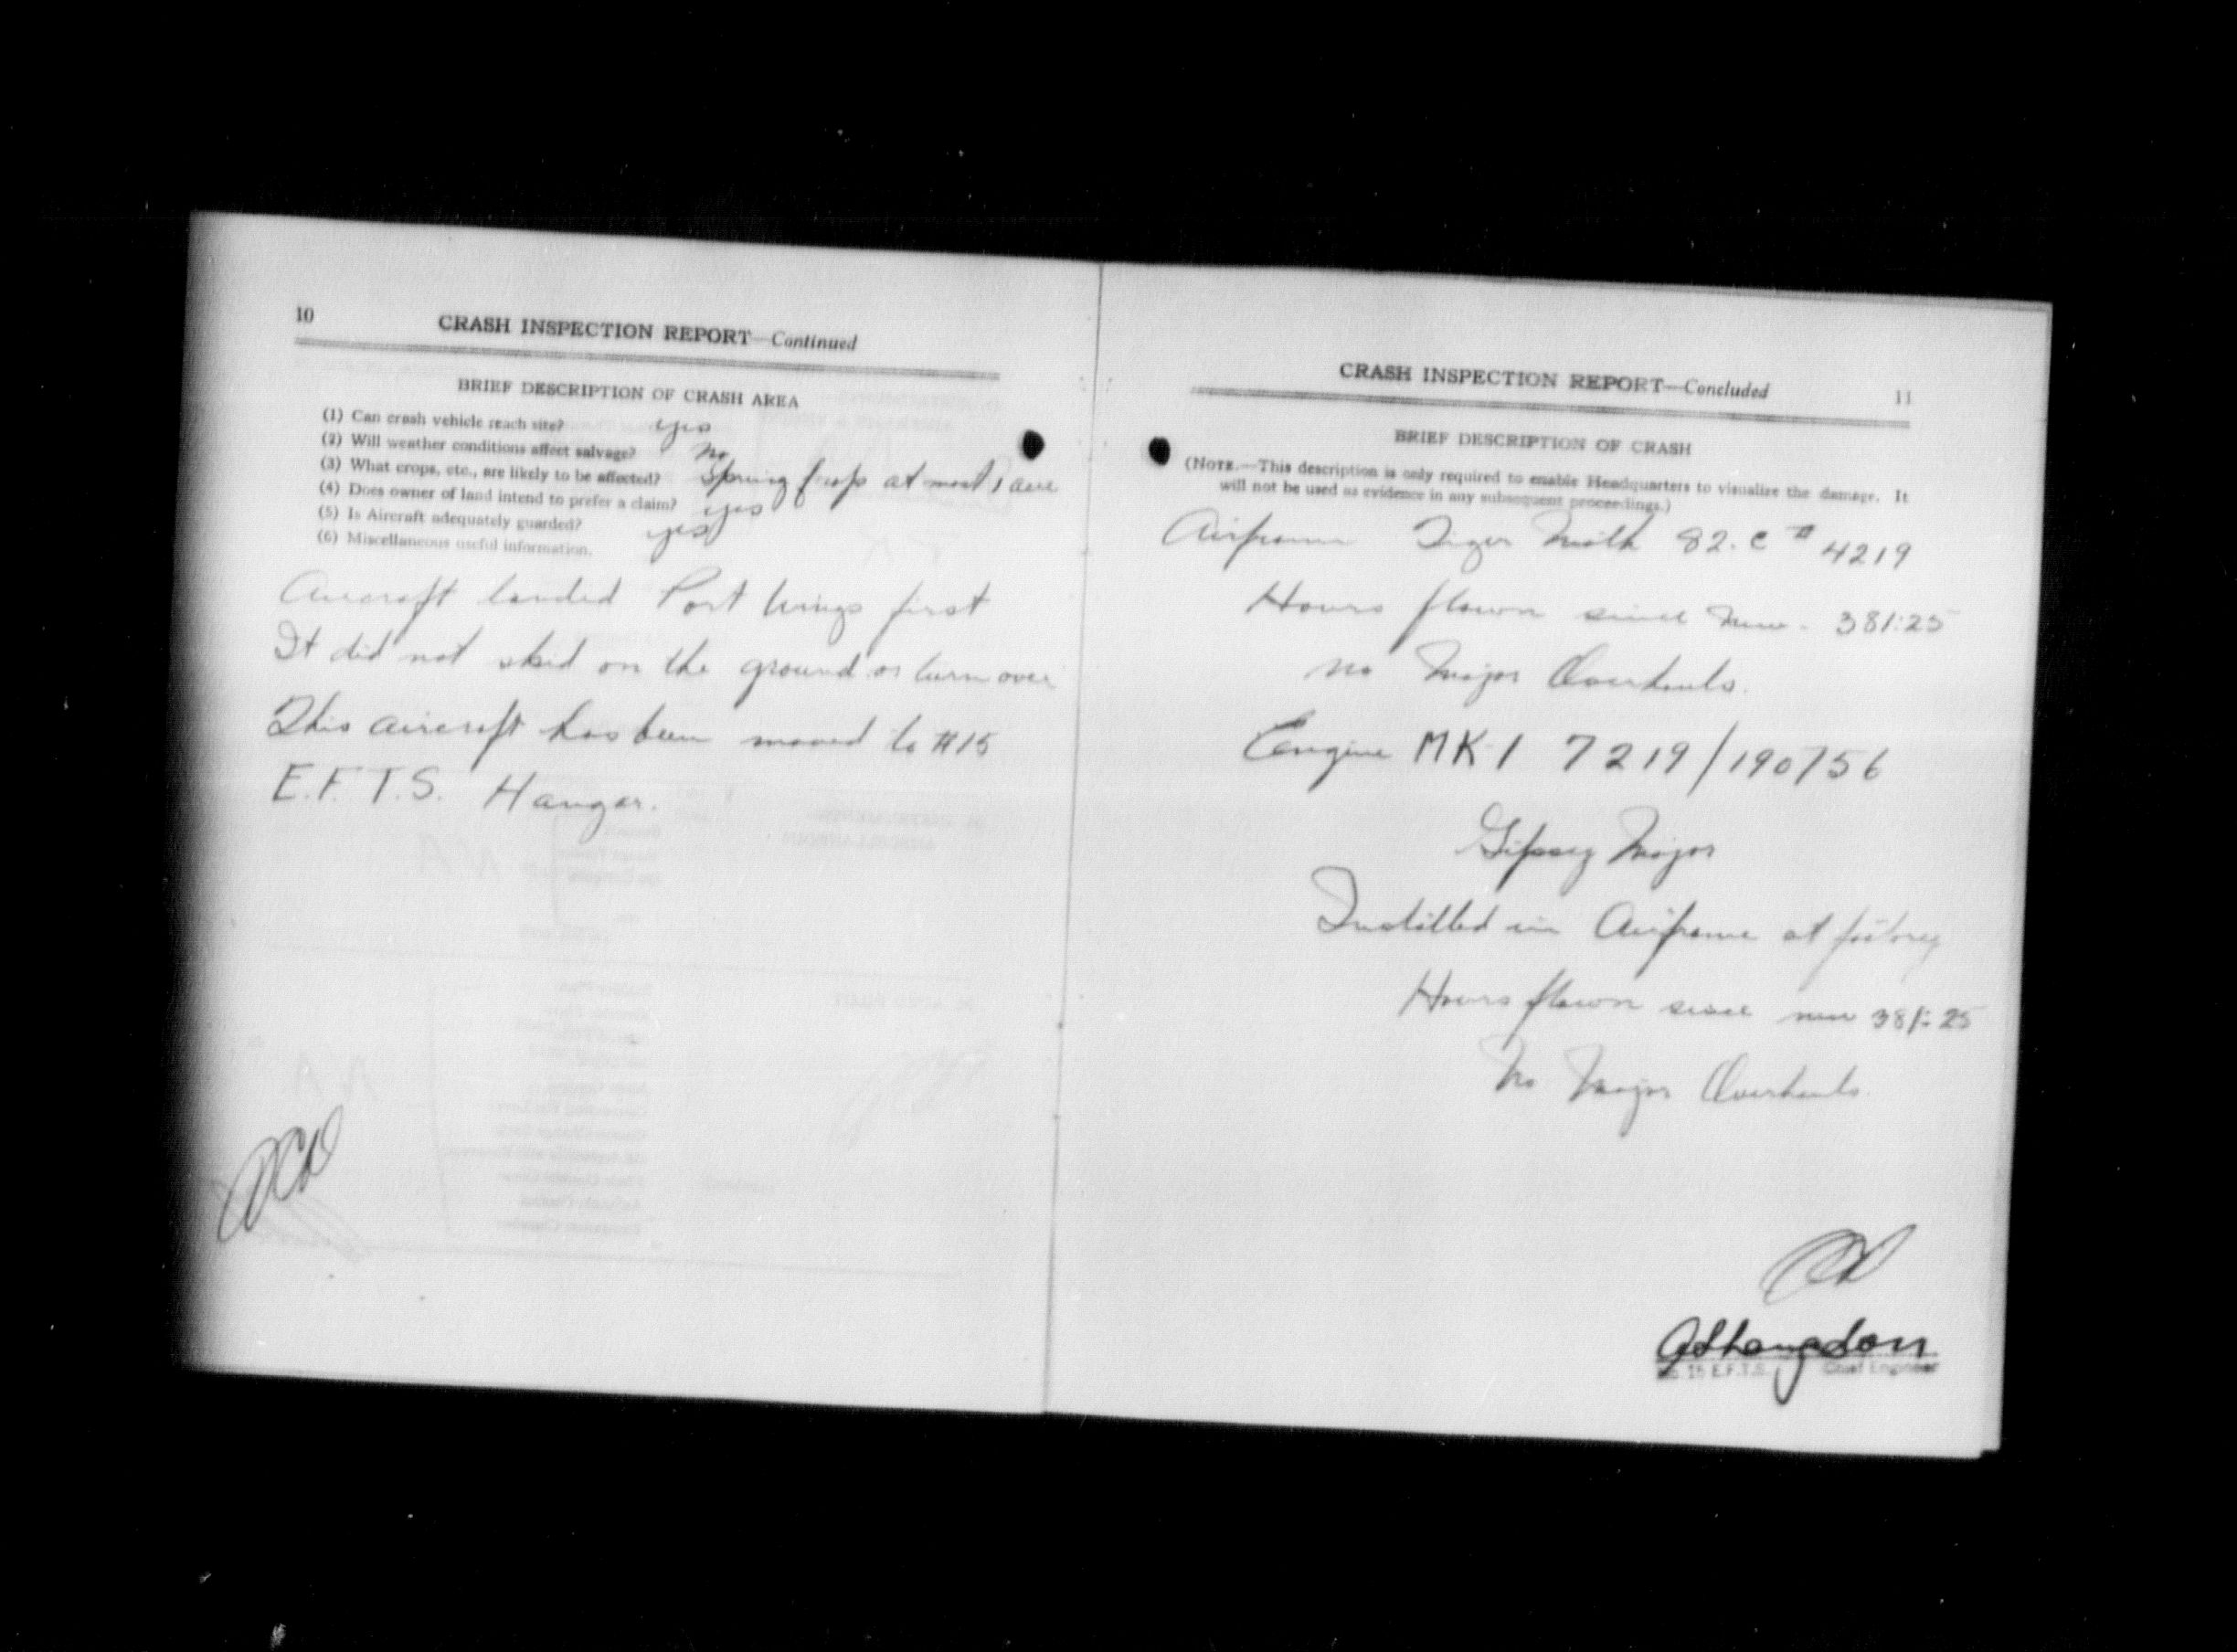 10
CRASH INSPECTION REPORT—Continued
BRIEF DESCRIPTION OF CRASH AREA
(1) Can crash vehicle reach site? yes
(2) Will weather conditions affect salvage? no
(3) What crops, etc., are likely to be affected? Spring Crops at most 1 acre
(4) Does owner of land intend to prefer a claim? yes
(5) Is Aircraft adequately guarded? yes
(6) Miscellaneous useful information.
Aircraft landed Port Wings first
It did not skid on the ground or turn over
This aircraft has been moved to #15
E.F.T.S. Hangar.
CRASH INSPECTION REPORT—Concluded
11
BRIEF DESCRIPTION OF CRASH
(NOTE.—This description is only required to enable Headquarters to visualize the damage. It
will not be used as evidence in any subsequent proceedings.)
Airframe Tiger Moth 82.C # 4219
Hours flown since New - 381:25
No Major Overhauls.
Engine MK 1 7219/190756
Gipsey Major
Installed in Airframe at factory
Hours flown since new 381:25
No Major Overhauls
No. 15 E.F.T.S. Chief Engineer